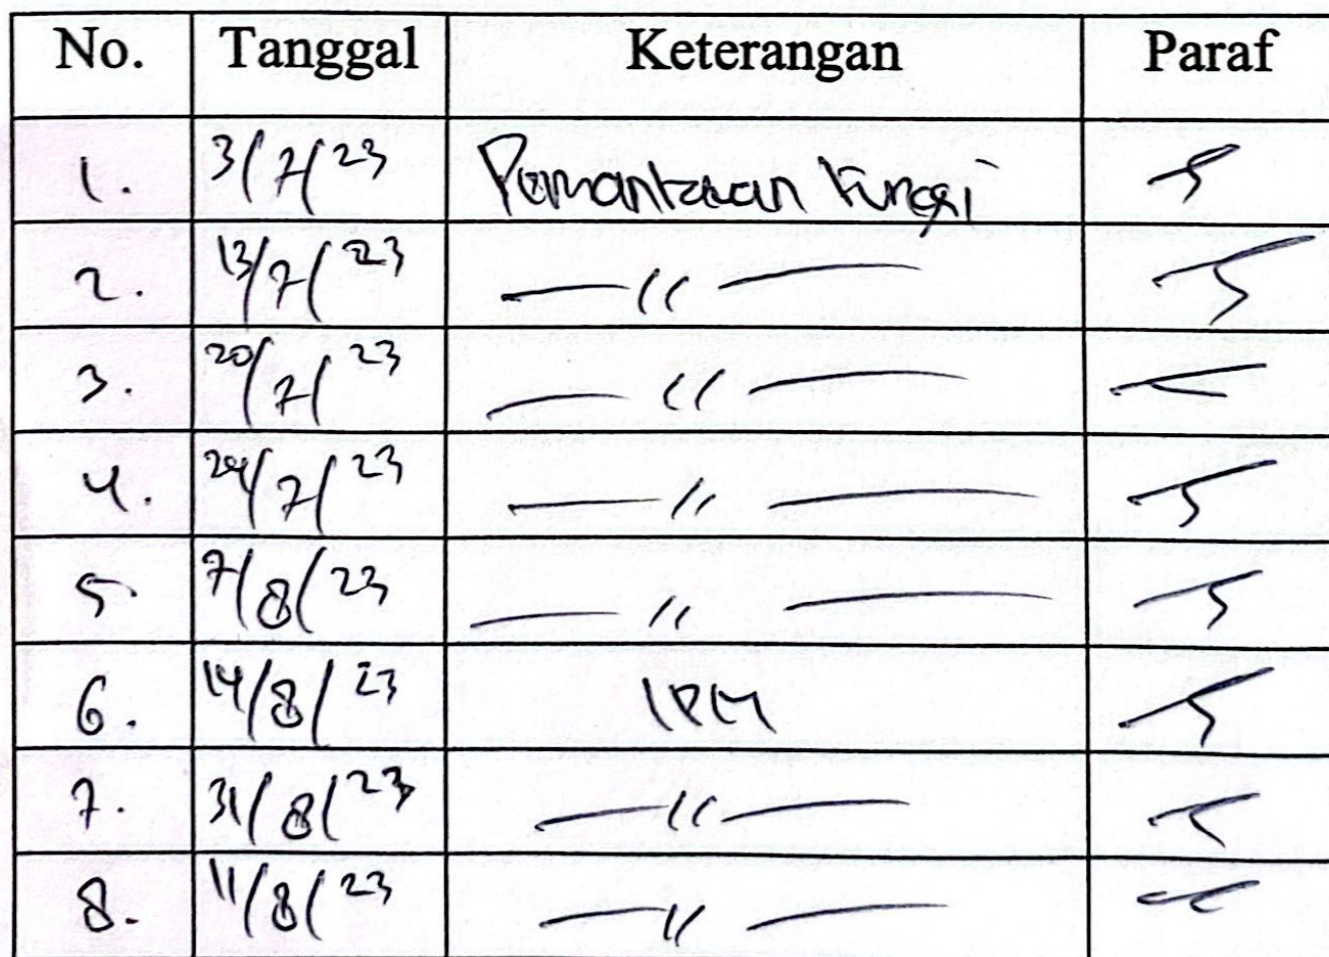 No. Tanggal Keterangan Paraf
1. 3/7/23 Pemantauan Fungsi
2. 13/7/23 — // —
3. 20/7/23 — // —
4. 24/7/23 — // —
5 7/8/23 — // —
6. 14/8/23 IPM
7. 31/8/23 — // —
8. 11/8/23 — // —